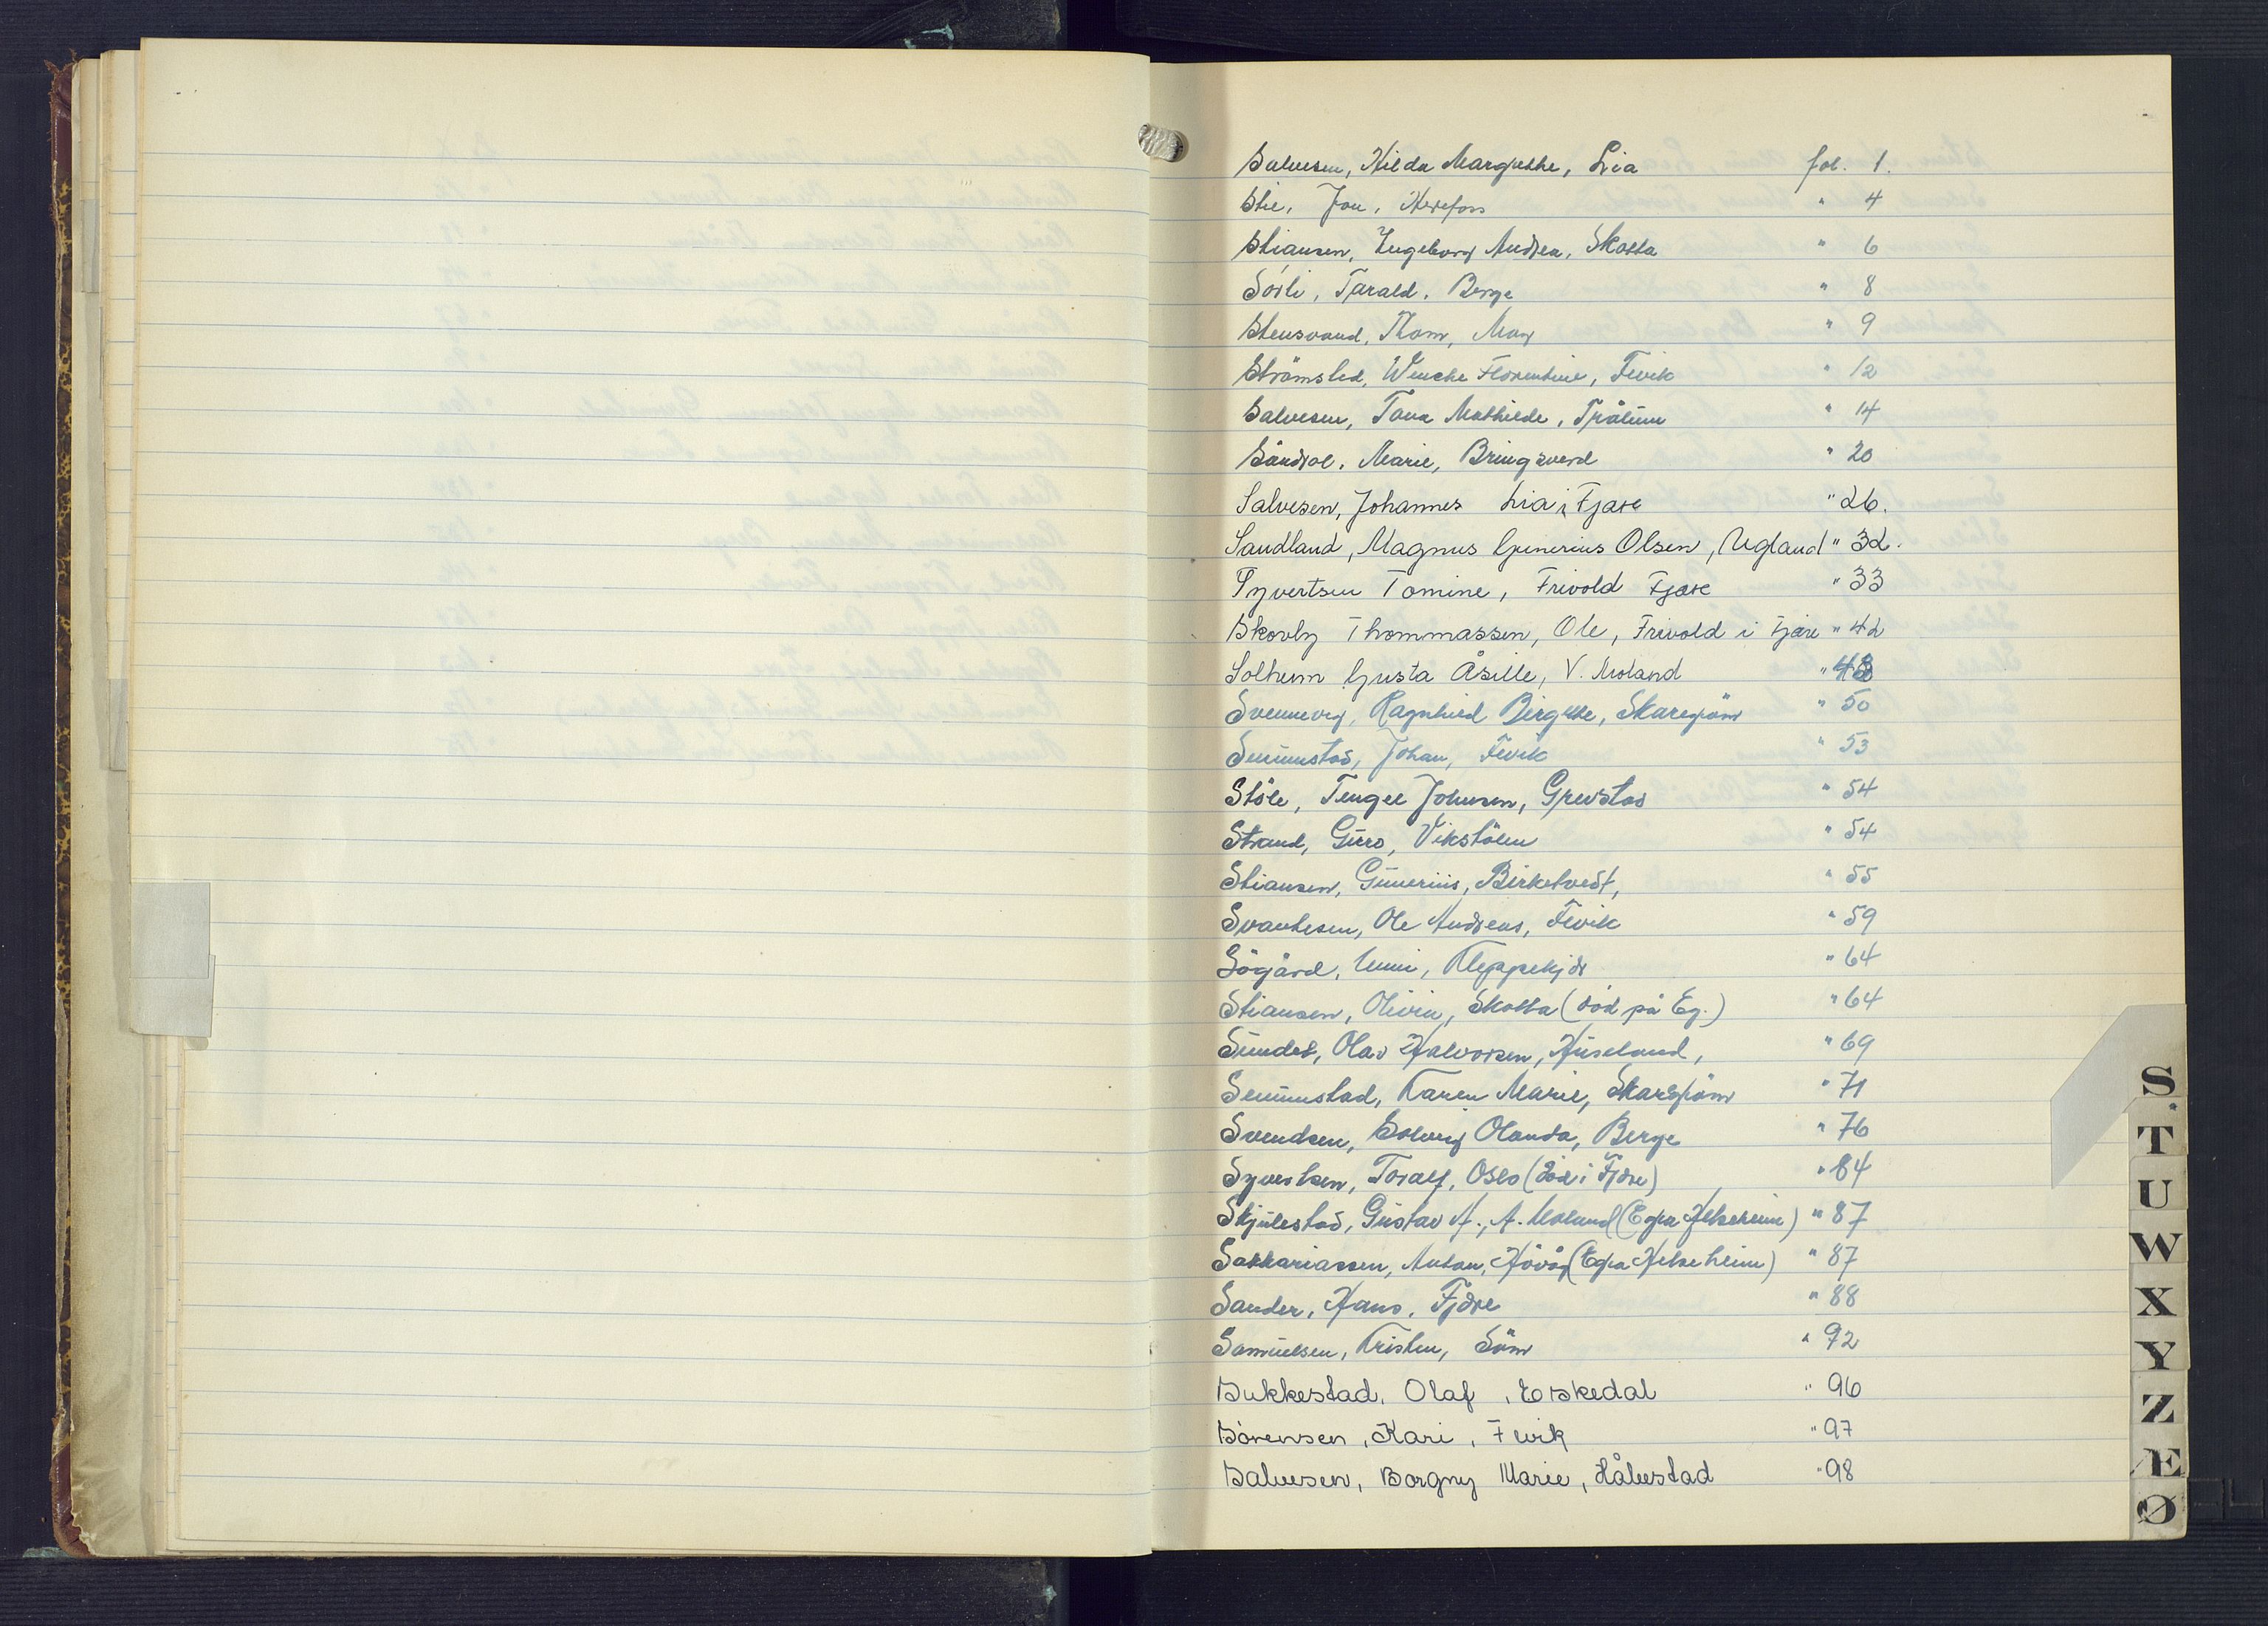 Salvesen, Hilda Margrethe, Lia fol. 1.
Stie, Jon, Herefoss " 4
Stiansen, Ingeborg Andrea, Skotta " 6
Sörli, Tarald, Berge " 8
Stensvand, Thom, Moy " 9
Strömsted, Wenche Florentine, Fevik " 12
Salvesen, Tona Mathilde, Trålum " 14
Sändtol, Marie, Bringsverd " 20
Salvesen, Johannes Lia i Fjære " 26.
Sandland, Magnus Gunerius Olsen, Ugland " 32.
Syvertsen Tomine, Frivold Fjære " 33
Skovly Thommassen, Ole, Frivold i Fjære " 42
Solheim Gusta Åsille, V. Moland " 48
Svennevig, Ragnhild Birgitte, Skaregröm " 50
Semmustad, Johan, Fevik " 53
Stöle, Tengel Johnsen, Grevstad " 54
Strand, Guro, Vikstölen " 54
Stiansen, Gunerius, Birketvedt, " 55
Svantesen, Ole Andreas, Fevik " 59
Sögård, Unni, Kleppekjær " 64
Stiansen, Olivia, Skotta (död på Eg.) " 64
Sundet, Olav Halvorsen, Huseland, " 69
Semmustad, Karen Marie, Skaregröm " 71
Svendsen, Solveig Olanda, Berge " 76
Syvertsen, Toralf, Oslo (död i Fjære) " 84
Skjulestad, Gustav A., A. Moland (Egra Helseheim) " 87
Sakkariassen, Anton, Hövåg (Egra Helseheim) " 87
Sander, Hans, Fjære " 88
Samuelsen, Kristen, Söm " 92
Sukkestad, Olaf, Eskedal " 96
Sörensen, Kari, Fevik " 97
Salvesen, Borgny Marie, Håbestad " 98
S.
T
U
W
X
Y
Z
Æ
Ø